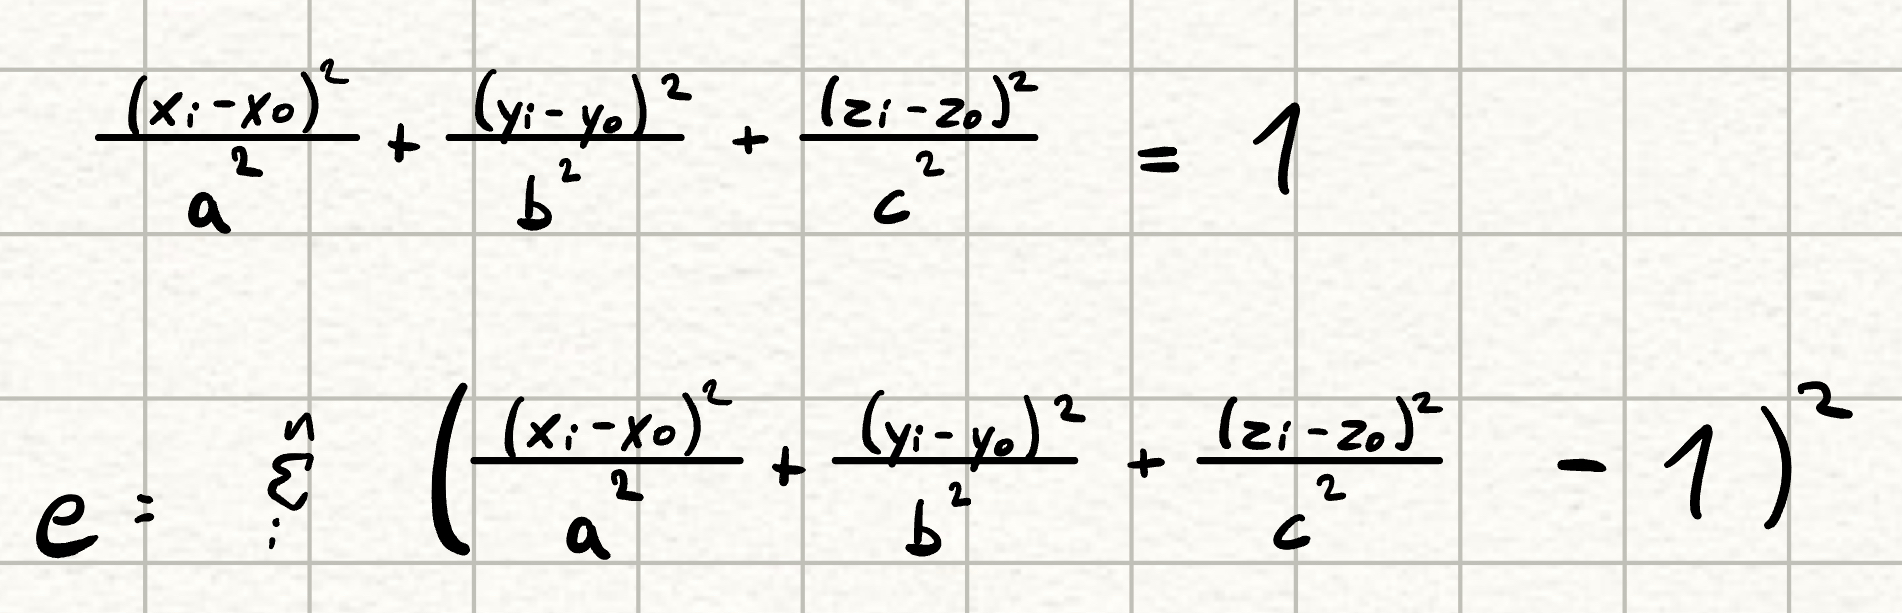 (xᵢ - x₀)²/a² + (yᵢ - y₀)²/b² + (zᵢ - z₀)²/c² = 1
e = Σᵢⁿ ((xᵢ - x₀)²/a² + (yᵢ - y₀)²/b² + (zᵢ - z₀)²/c² - 1)²